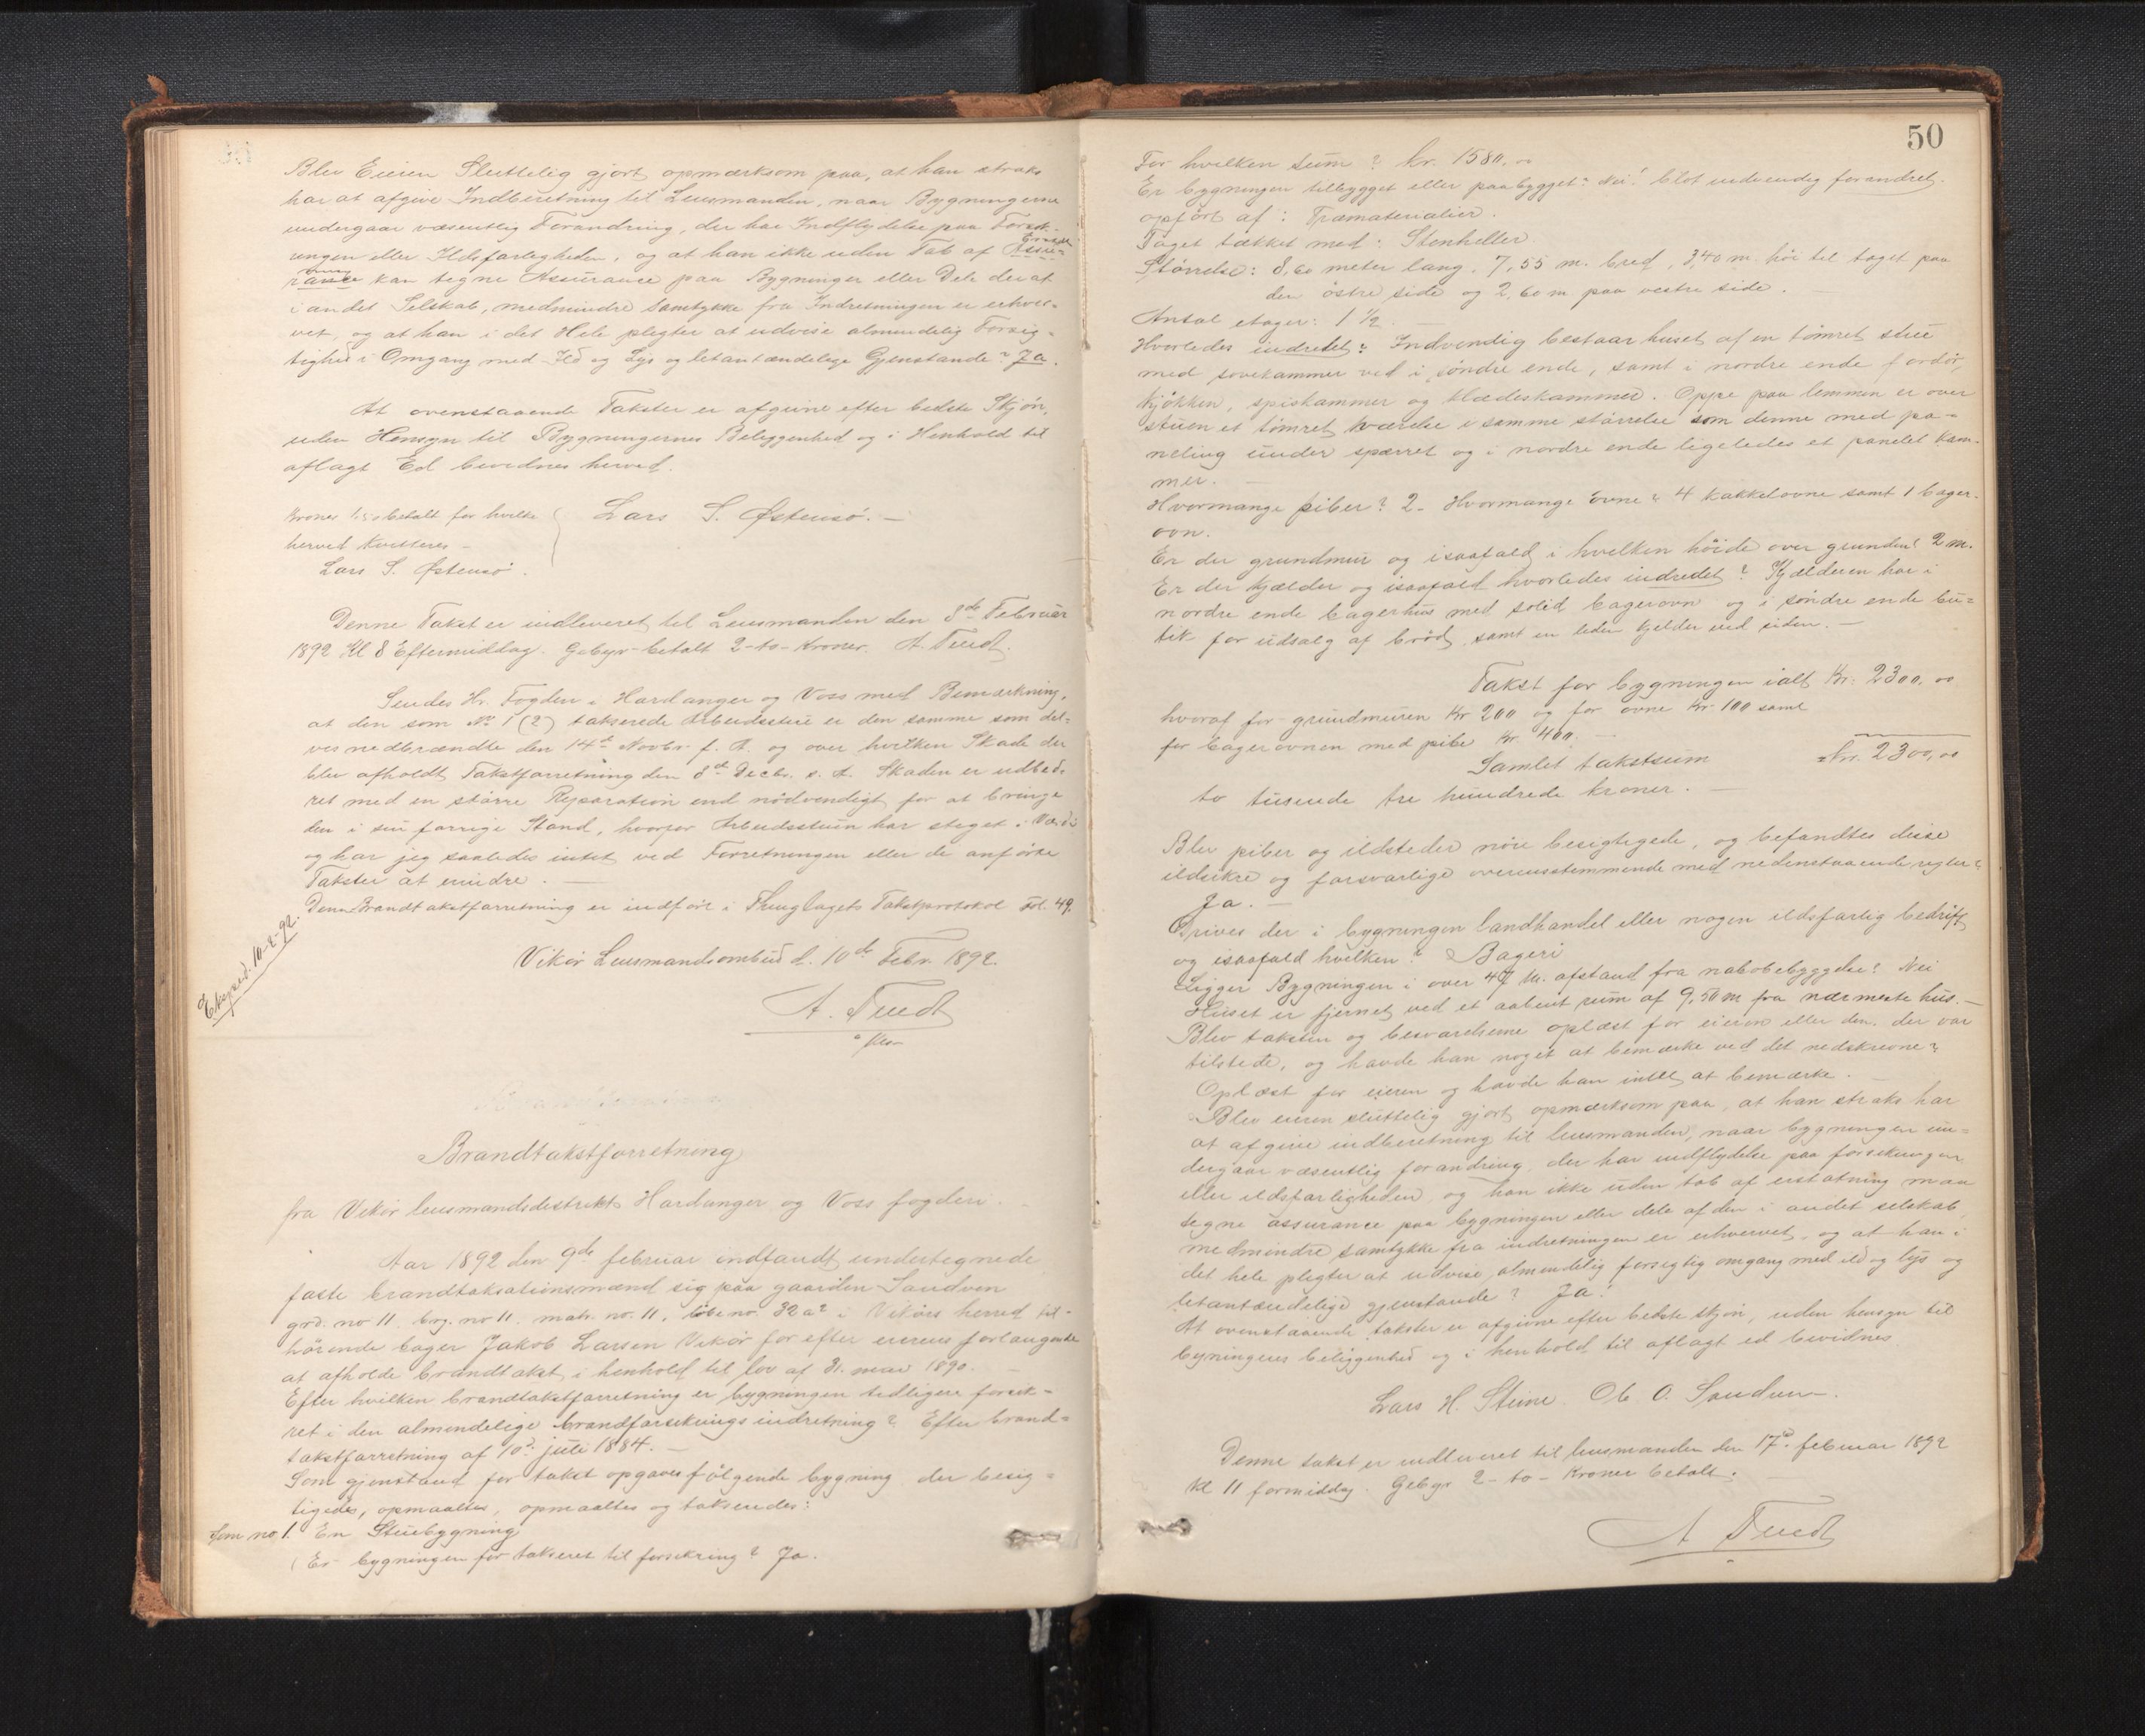 Blev Eieren Sluttelig gjort opmærksom paa, at han straks
har at afgive Indberetning til Lensmanden, naar Bygningerne
undergaar væsentlig Forandring, der har Indflydelse paa Forsik-
ringen eller Ildsfarligheden, og at han ikke uden Tab af Assu-
rance kan tegne Assurance paa Bygninger eller Dele deraf
i andet Selskab, medmindre Samtykke fra Indretningen er erhver-
vet, og at han i det Hele pligter at udvise almindelig Forsig-
tighed i Omgang med Ild og Lys og letantændelige Gjenstande? Ja.
At ovenstaaende Takster er afgivne efter bedste Skjøn,
uden Hensyn til Bygningernes Beliggenhed og i Henhold til
aflagt Ed bevidnes herved.
Kroner 1.50 betalt for hvilke
herved kvitteres –
Lars S. Østensø.
Lars S. Østensø. –
Denne Takst er indleveret til Lensmanden den 8de Februar
1892 Kl 8 Eftermiddag. Gebyr betalt 2 - to - Kroner. A. Tvedt.
Sendes Hr. Fogden i Hardanger og Voss med Bemærkning,
at den som No 1 (2) takserede Arbeidsstue er den samme som del-
vis nedbrændte den 14de Novbr. f. A. og over hvilken Skade der
blev afholdt Takstforretning den 8de Decbr. s. A. Skaden er udbed-
ret med en større Reparation end nødvendigt for at bringe
den i sin forrige Stand, hvorfor Arbeidsstuen har steget i Værdi
og har jeg saaledes intet ved Forretningen eller de anførte
Takster at erindre. –
Denne Brandtakstforretning er indført i Thinglagets Takstprotokol Fol. 49.
Eksped. 10-2-92.
Vikør Lensmandsombud d. 10de Febr. 1892.
A. Tvedt
Brandtakstforretning
fra Vikør lensmandsdestrikt, Hardanger og Voss fogderi.
Aar 1892 den 9de februar indfandt undertegnede
faste brandtaksationsmænd sig paa gaarden Sandven
grd. no 11. brg. no 11. matr. no. 11. løbe no. 32 a2 i Vikørs herred til-
hørende bager Jakob Larsen Vikør for efter eierens forlangende
at afholde brandtakst i henhold til lov af 31. mai 1890. –
Efter hvilken brandtakstforretning er bygningen tidligere forsik-
ret i den almindelige brandforsikringsindretning? Efter brand-
takstforretning af 10de juli 1884. –
Som gjenstand for takst opgaves følgende bygning der besig-
tigedes, opmaaltes, opmaaltes og takseredes:
Som no 1. En Stuebygning
(Er bygningen før takseret til forsikring? Ja.
50
For hvilken sum? kr. 1580.00
Er bygningen tilbygget eller paabygget? Nei! blot indvendig forandret.
opført af: Træmaterialier.
Taget tækket med: Stenheller
Størrelse: 8,60 meter lang, 7,55 m. bred, 3,40 m. høi til taget paa
den østre side og 2,60 m paa vestre side. –
Antal etager: 1 1/2 –
Hvorledes indredet? Indvendig bestaar huset af en tømret stue
med sovekammer ved i søndre ende, samt i nordre ende fordør,
kjøkken, spiskammer og klædeskammer. Oppe paa lemmen er over
stuen et tømret værelse i samme størrelse som denne med pa-
neling under sperret og i nordre ende ligeledes et panelet kam-
mer. –
Hvormange piber? 2 – Hvormange ovne? 4 kakkelovne samt 1 bager-
ovn.
Er der grundmur og isaafald i hvilken høide over grunden? 2 m.
Er der kjælder og isaafald hvorledes indredet? Kjælderen har i
nordre ende bagerhus med solid bagerovn og i søndre ende bu-
tik for udsalg af brød, samt en liden kjelder ved siden. –
Takst for bygningen ialt Kr: 2300.00
hvoraf for grundmuren Kr 200 og for ovne Kr 100 samt
for bagerovnen med pibe Kr. 400. –
Samlet takstsum Kr. 2300,00
to tusende tre hundrede kroner. –
Blev piber og ildsteder nøie besigtigede, og befandtes disse
ildsikre og forsvarlige overensstemmende med nedenstaaende regler?
Ja. –
Drives der i bygningen landhandel eller nogen ildsfarlig bedrift
og isaafald hvilken? Bageri
Ligger Bygningen i over 40 M. afstand fra nabobebyggelse? Nei
Huset er fjernet ved et aabent rum af 9,50 m fra nærmeste hus. –
Blev taksten og besvarelserne oplæst for eieren eller den, der var
tilstede, og havde han noget at bemærke ved det nedskrevne?
Oplæst for eieren og havde han intet at bemærke. –
Blev eieren sluttelig gjort opmærksom paa, at han straks har
at afgive indberetning til lensmanden, naar bygningen un-
dergaar væsentlig forandring, der har indflydelse paa forsikringen
eller ildsfarligheden, og han ikke uden tab af erstatning maa
tegne assurance paa bygningen eller dele af den i andet selskab,
medmindre samtykke fra indretningen er erhvervet, og at han i
det hele pligter at udvise almindelig forsigtig omgang med ild og lys og
letantændelige gjenstande? Ja!
At ovenstaaende takster er afgivne efter bedste skjøn, uden hensyn til
bygningens beliggenhed og i henhold til aflagt ed bevidnes
Lars H. Steine. Ole O. Sandven. –
Denne takst er indleveret til lensmanden den 17de februar 1892
kl 11 formiddag. Gebyr 2 - to - Kroner betalt.
A Tvedt